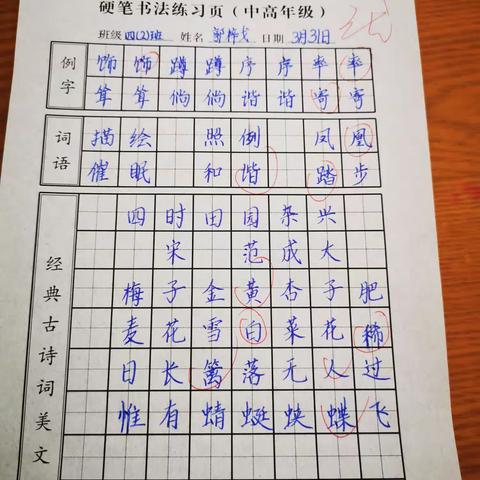 硬笔书法练习页(中高年级)
班级 四(2)班 姓名 日期 3月31日
例字
饰 饰 蹲 蹲 序 序 率 率
耸 耸 倘 倘 谐 谐 寄 寄
词语
描 绘 照 例 凤 凰
催 眠 和 谐 踏 步
经典古诗词美文
四 时 田 园 杂 兴
宋 范 成 大
梅 子 金 黄 杏 子 肥
麦 花 雪 白 菜 花 稀
日 长 篱 落 无 人 过
惟 有 蜻 蜓 蛱 蝶 飞